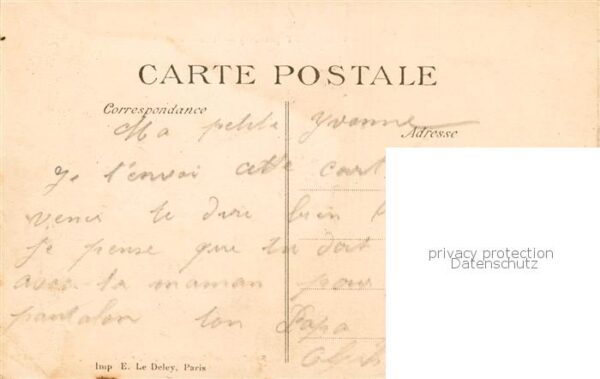 CARTE POSTALE
Correspondance
Adresse
Ma petite Yvonne
Je t'envoi cette cart
venir te dire bien
Je pense que tu doit
avec ta maman pour
pantalon ton Papa
privacy protection
Datenschutz
Imp E. Le Deley, Paris